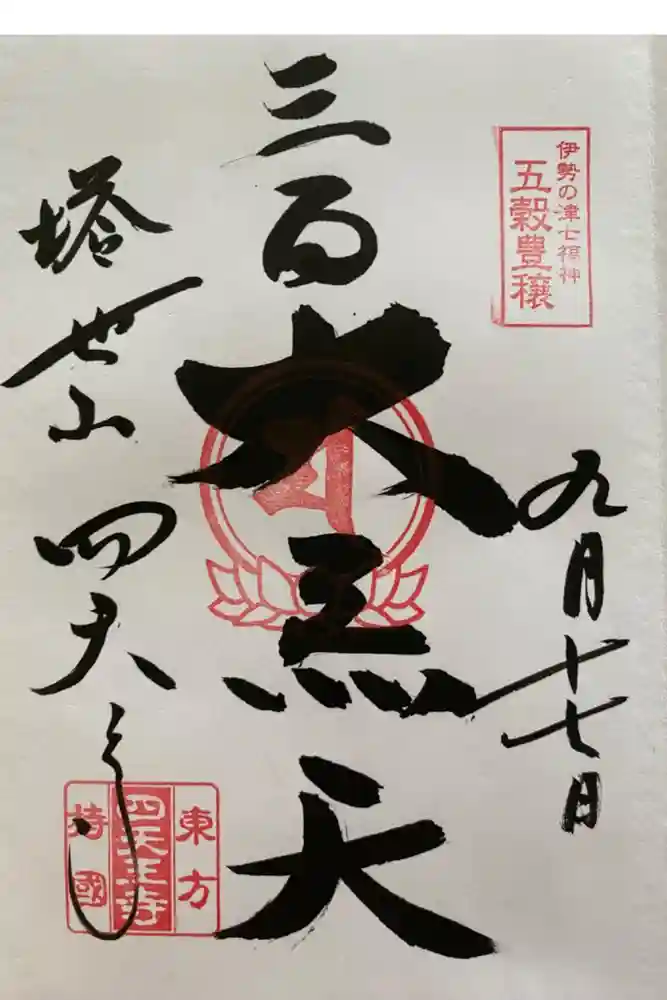 伊勢の津七福神
五穀豊穣
九月十七日
三面大黒天
塔世山 四天王寺
東方
四天王寺
持國